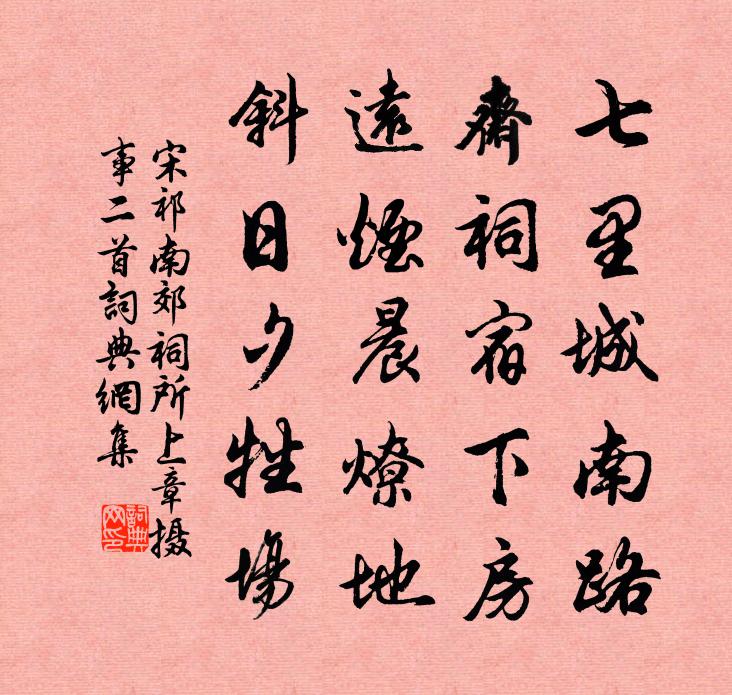 七里城南路
齋祠宿下房
遠煙晨燎地
斜日夕牲場
宋祁南郊祠所上章摄
事二首詞典網集
詞典
网印